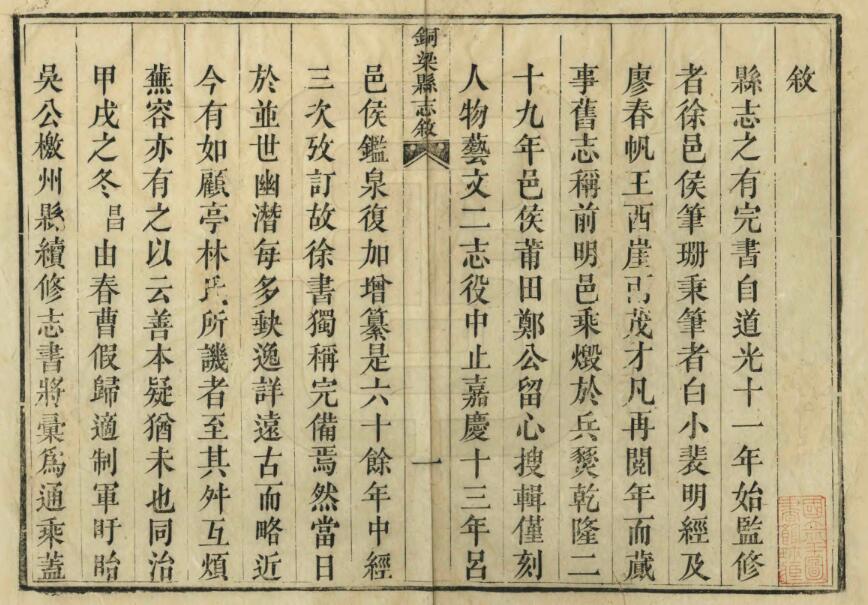 敘
縣志之有完書自道光十一年始監修
者徐邑侯筆珊秉筆者白小裴明經及
廖春帆王西崖兩茂才凡再閱年而蕆
事舊志稱前明邑乘燬於兵燹乾隆二
十九年邑侯莆田鄭公留心搜輯僅刻
人物藝文二志役中止嘉慶十三年呂
銅梁縣志敘
一
邑侯鑑泉復加增纂是六十餘年中經
三次攷訂故徐書獨稱完備焉然當日
於並世幽潛每多缺逸詳遠古而略近
今有如顧亭林氏所譏者至其舛互煩
蕪容亦有之以云善本疑猶未也同治
甲戌之冬昌由春曹假歸適制軍盱眙
吳公檄州縣續修志書將彙為通乘蓋